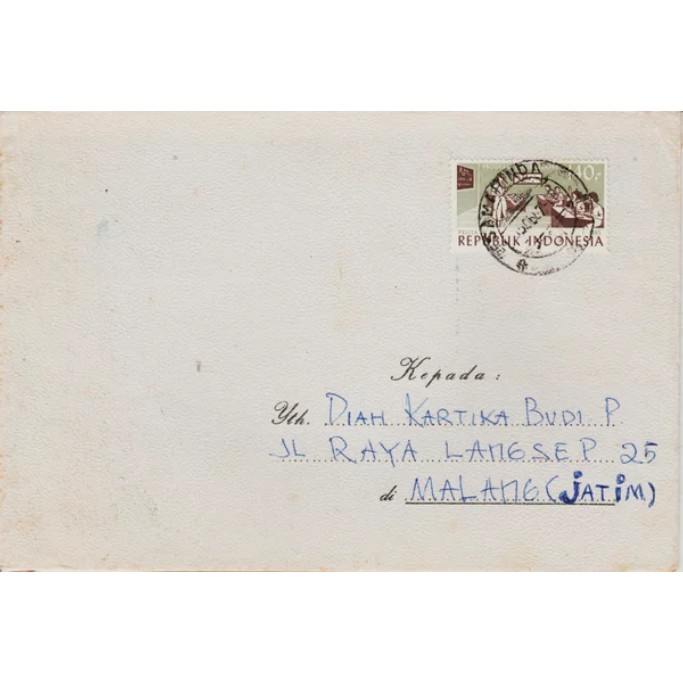 SAMARINDA
40,-
REPUBLIK INDONESIA
Kepada :
Yth. DIAH KARTIKA BUDI P
JL RAYA LANGSEP 25
di MALANG (JATIM)